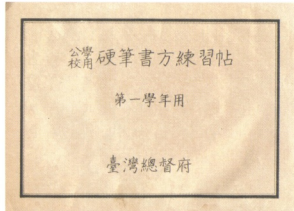 公學校用 硬筆書方練習帖
第一學年用
臺灣總督府